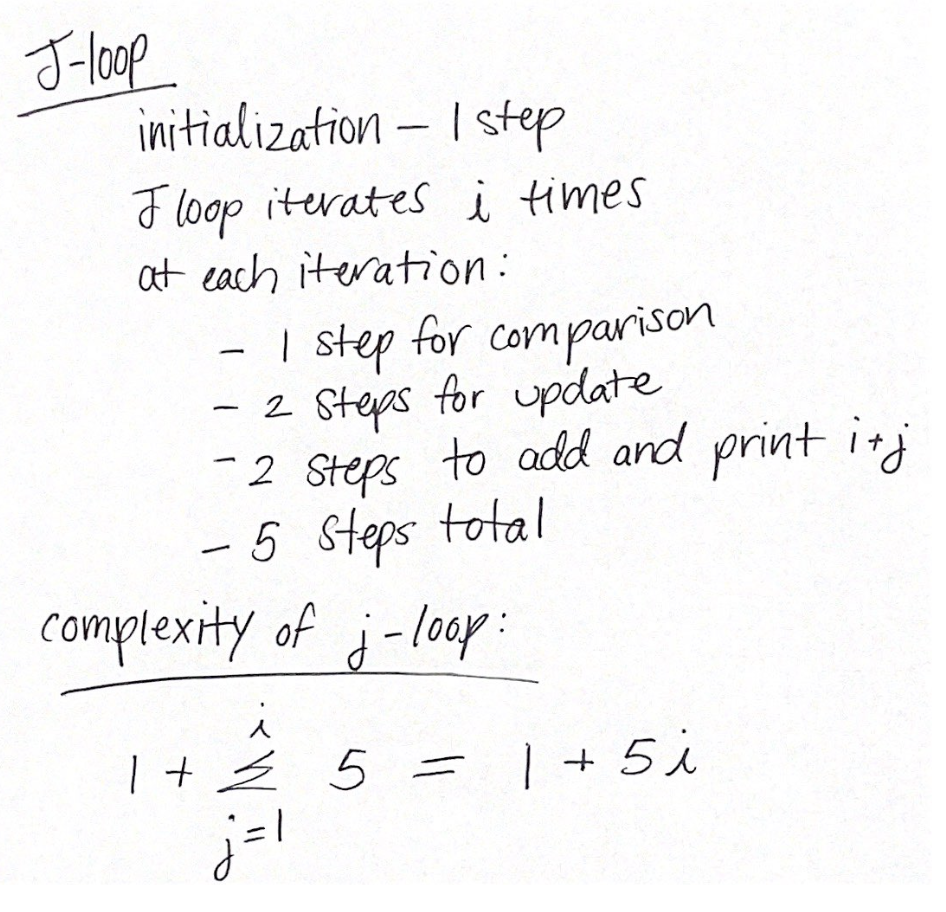 J-loop
initialization – 1 step
J loop iterates i times
at each iteration:
- 1 step for comparison
- 2 steps for update
- 2 steps to add and print i+j
- 5 steps total
complexity of j-loop:
i
1 + Σ 5 = 1 + 5i
j=1